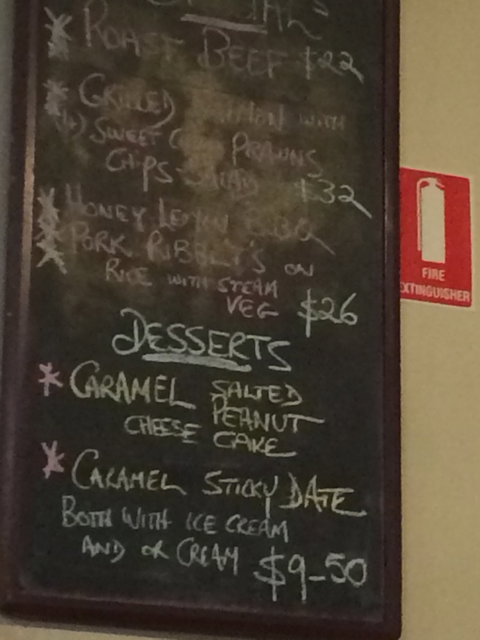 * ROAST BEEF $22
* GRILLED WITH
SWEET PRAWNS
CHIPS - SALAD $32
* HONEY LEMON B.B.Q
* PORK RIBLETS ON
RICE WITH STEAM
VEG $26
DESSERTS
* CARAMEL SALTED
PEANUT
CHEESE CAKE
* CARAMEL STICKY DATE
BOTH WITH ICE CREAM
AND OR CREAM $9-50
FIRE
EXTINGUISHER